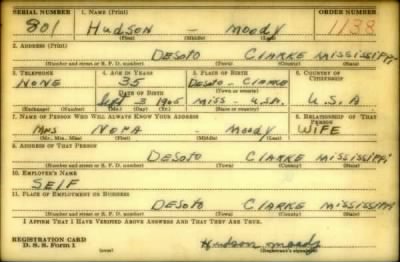 SERIAL NUMBER 1. NAME (Print) ORDER NUMBER
801 Hudson - Moody 1138
(First) (Middle) (Last)
2. ADDRESS (Print)
DESOTO CLARKE MISSISSIPPI
(Number and street or R. F. D. number) (Town) (County) (State)
3. TELEPHONE 4. AGE IN YEARS 5. PLACE OF BIRTH 6. COUNTRY OF CITIZENSHIP
NONE 35 DESOTO - CLARKE
DATE OF BIRTH (Town or county)
Sept 3 1905 MISS - U.S.A. U.S.A
(Exchange) (Number) (Mo.) (Day) (Yr.) (State or country)
7. NAME OF PERSON WHO WILL ALWAYS KNOW YOUR ADDRESS 8. RELATIONSHIP OF THAT PERSON
MRS NORA - MOODY WIFE
(Mr., Mrs., Miss) (First) (Middle) (Last)
9. ADDRESS OF THAT PERSON
DESOTO CLARKE MISSISSIPPI
(Number and street or R. F. D. number) (Town) (County) (State)
10. EMPLOYER'S NAME
SELF
11. PLACE OF EMPLOYMENT OR BUSINESS
DESOTO CLARKE MISSISSIPPI
(Number and street or R. F. D. number) (Town) (County) (State)
I AFFIRM THAT I HAVE VERIFIED ABOVE ANSWERS AND THAT THEY ARE TRUE.
REGISTRATION CARD
D. S. S. Form 1 (over) Hudson Moody
(Registrant's signature)